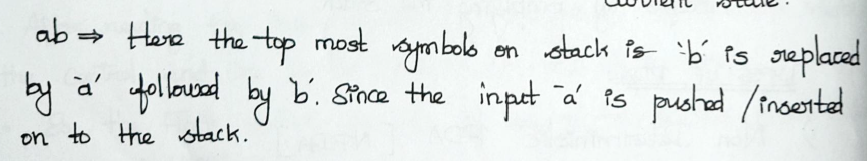 ab ⇒ Here the top most symbols on stack is 'b' is replaced
by 'a' followed by 'b'. Since the input 'a' is pushed /inserted
on to the stack.